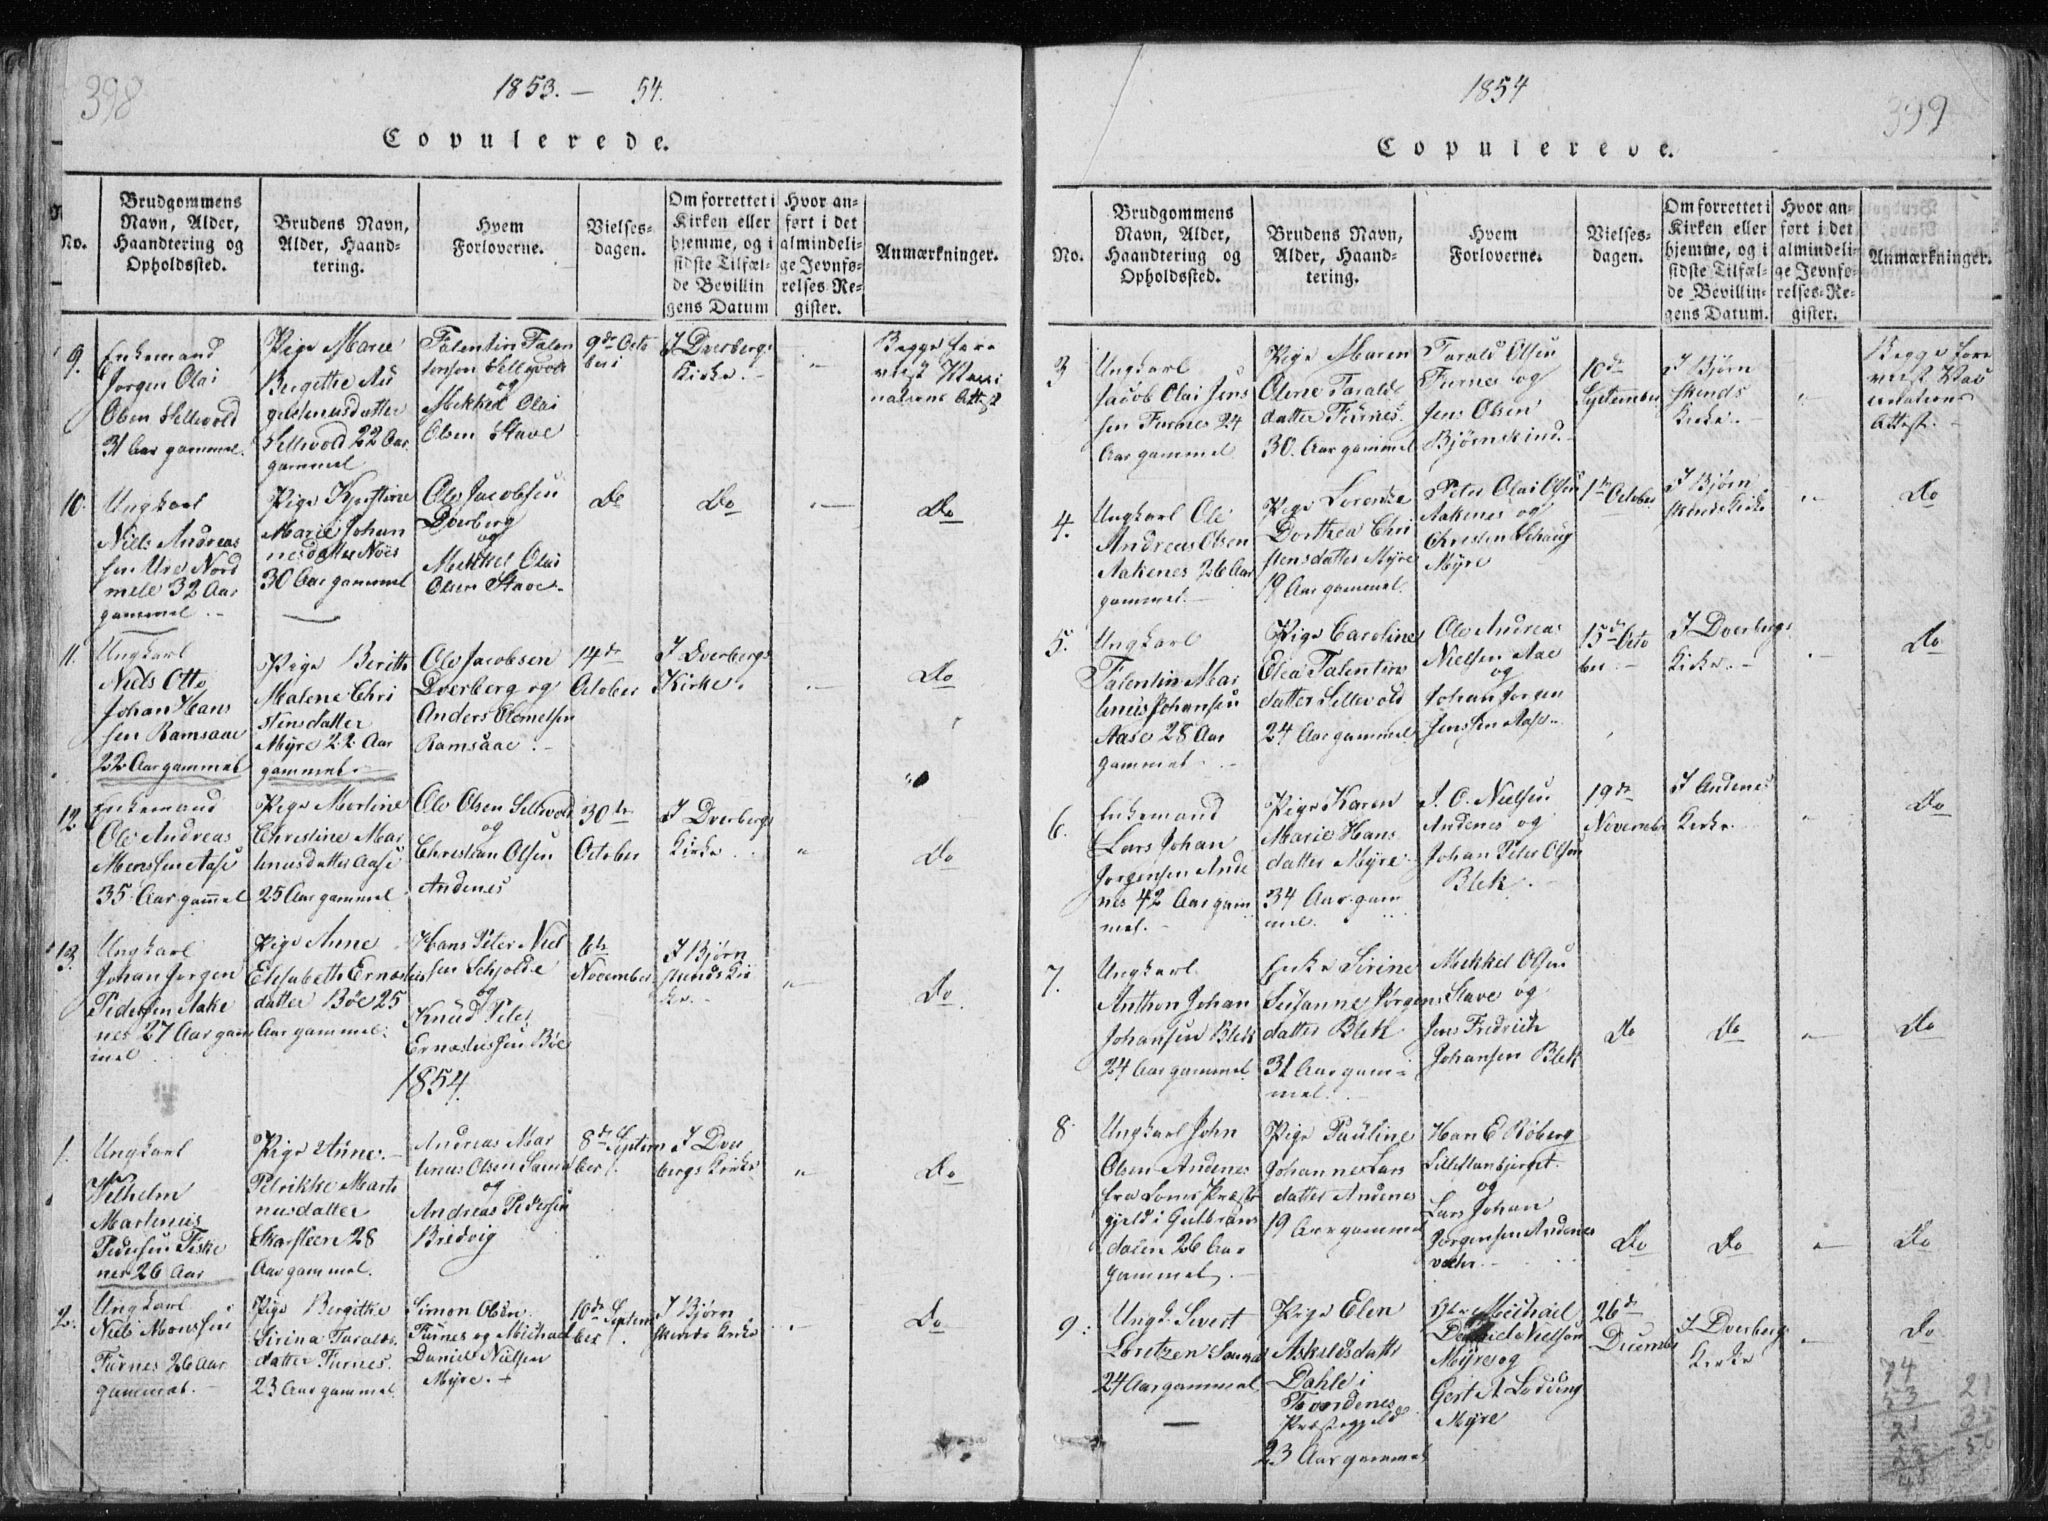 398
1853. — 54.
Copulerede.
No.
Brudgommens Navn, Alder, Haandtering og Opholdssted.
Brudens Navn, Alder, Haandtering.
Hvem Forloverne.
Vielsesdagen.
Om forrettet i Kirken eller hjemme, og i sidste Tilfælde Bevillingens Datum
Hvor anført i det almindelige Jevnførelses-Register.
Anmærkninger.
9.
Enkemand
Jørgen Olai
Olsen Sellevold
31 Aar gammel.
Pige Marie
Bergitthe Au
gustinusdatter
Sellevold 22 Aar
gammel
Falentin Falen
tinsen Sellevold
og
Mekkel Olai
Olsen Stave
9de Octo
ber
I Dverbergs
Kirke.
"
Begge fore
viist Vacci
nations Attest
10.
Ungkarl
Niels Andreas
sen Ure Nord
mele 32 Aar
gammel.
Pige Kjerstine
Marie Johan
nesdatter Nöes
30 Aar gammel
Ole Jacobsen
Dverberg
og
Mekkel Olai
Olsen Stave
Do
Do
Do
11.
Ungkarl
Niels Otto
Johan Hans
sen Ramsaae
22 Aar gammel
Pige Berith
Malene Chri
stensdatter
Myre 22 Aar
gammel.
Ole Jacobsen
Dverberg og
Anders
Ramsaae.
14de
October
I Dverbergs
Kirke.
Do
12.
Enkemand
Ole Andreas
Monssen Aase
35 Aar gammel
Pige Martine
Christine Mar
tinusdatter Aase
25 Aar gammel
Ole Olsen Sellevold
og
Christian Olsen
Andenes
30te
October
I Dverbergs
Kirke
"
Do
13.
Ungkarl
Johan Jørgen
Pedersen Aake
nes 27 Aar gam
mel
Pige Anne
Elisabeth Ernæstus
datter Böe 25
Aar gammel.
Hans Peter Niel
sen Schjolde
og
Knud Peter
Ernæstussen Böe
6te
November
I Bjørn
skinds Kir
ke.
"
Do
1854.
1.
Ungkarl
Vilhelm
Martinus
Pedersen Fiske
nes 26 Aar
Pige Anne
Petrikke Marti
nusdatter
Skarsteen 28
Aar gammel.
Andreas Mar
tinus Olsen
og
Andreas Pedersen
Bredvig
8de Septem
ber.
I Dver
bergs Kirke
"
Do
2.
Ungkarl
Niels Monssen
Furnes 26 Aar
gammel.
Pige Bergitthe
Sirina Taralds
datter Furnes.
23 Aar gammel.
Simon Olsen
Furnes og Michael
Daniel Nielsen
Myre.
10de Septem
ber
I Bjørn
skinds Kirke
Do
1854
399
Copulerede.
No.
Brudgommens Navn, Alder, Haandtering og Opholdssted.
Brudens Navn, Alder, Haandtering.
Hvem Forloverne.
Vielsesdagen.
Om forrettet i Kirken eller hjemme, og i sidste Tilfælde Bevillingens Datum.
Hvor anført i det almindelige Jevnførelses-Register.
Anmærkninger.
3
Ungkarl
Jacob Olai Jens
sen Furnes 24
Aar gammel
Pige Maren
Olene Tarald
datter Furnes
30. Aar gammel
Tarald Olsen
Furnes og
Jens Olsen
Bjørnskind.
10de
September
I Bjørn
skinds
Kirke.
"
Begge fore
viist Vac
cination
Attest.
4.
Ungkarl Ole
Andreas Olsen
Aakenes 26 Aar
gammel.
Pige Lorentze
Dorthea Chri
stensdatter Myre
19 Aar gammel.
Peter Olai Olsen
Aakenes og
Christen Schaug
Myre
1ste October
I Bjørn
skinds Kirke
"
Do
5.
Ungkarl
Falentin Mar
tinus Johansen
Aase 28 Aar
gammel.
Pige Caroline
Elea Falentins
datter Sellevold
24 Aar gammel
Ole Andreas
Nielsen Aae
og
Johan Jørgen
Jenssen Aase
15de Octo
ber.
I Dverbergs
Kirke.
Do
6.
Enkemand
Lars Johan
Jørgensen Ande
nes 42 Aar gam
mel.
Pige Karen
Marie Hans
datter Myre
34 Aar gam
mel.
J. C. Nielsen
Andenes og
Johan Peter Olsen
Blek.
19de
Novembr
I Andenes
Kirke.
"
Do
7.
Ungkarl
Anthon Johan
Johansen Blek
24 Aar gammel.
Enke Sirine
Susanne Jørgens
datter Blek
31 Aar gam
mel.
Mekkel Olsen
Stave og
Jens Fredrich
Johansen Blek
Do
Do
"
Do
8
Ungkarl John
Olsen Andenes
fra Loms Præste
gjeld i Gulbrans
dalen 26 Aar
gammel.
Pige Pauline
Johanne Lars
datter Andenes
19 Aar gammel
Hans E Röberg
og
Lars Johan
Jørgensen Andenes
Do
Do
"
Do
9.
Ungk. Sivert
Loretzen
24 Aar gammel
Pige Elen
Askeldsdatter
Dahle i
Præstegjeld
23 Aar gammel
Michael
Daniel Nielsen
Myre og
Gert A Lodding
Myre
26de
Decembr
I Dverbergs
Kirke
Do
74
53
21
21
35
56